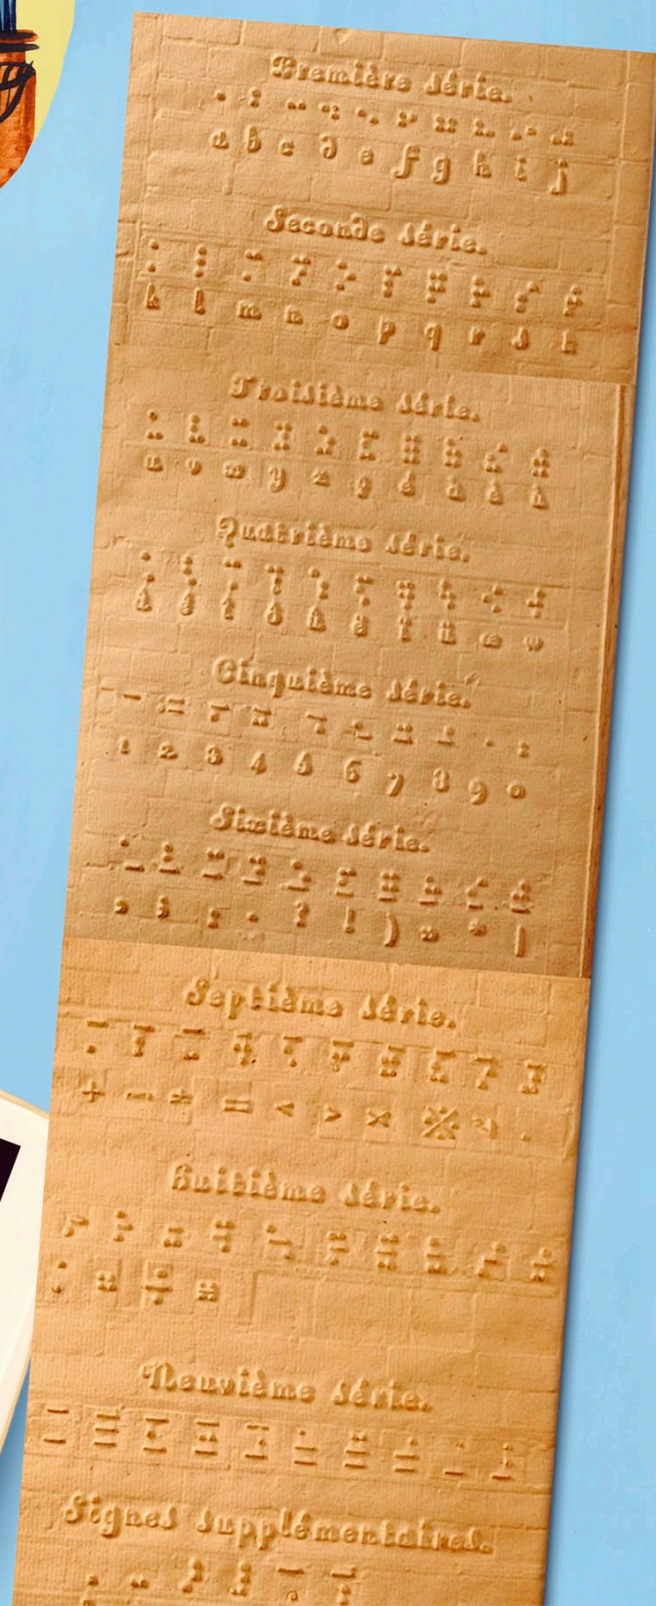 Première série.
a b c d e f g h i j
Seconde série.
k l m n o p q r s t
Troisième série.
u v x y z ç é à è ù
Quatrième série.
â ê î ô û ë ï ü œ w
Cinquième série.
1 2 3 4 5 6 7 8 9 0
Sixième série.
, ; : . ? ! ) « * |
Septième série.
+ − = < > ×
Huitième série.
Neuvième série.
Signes supplémentaires.